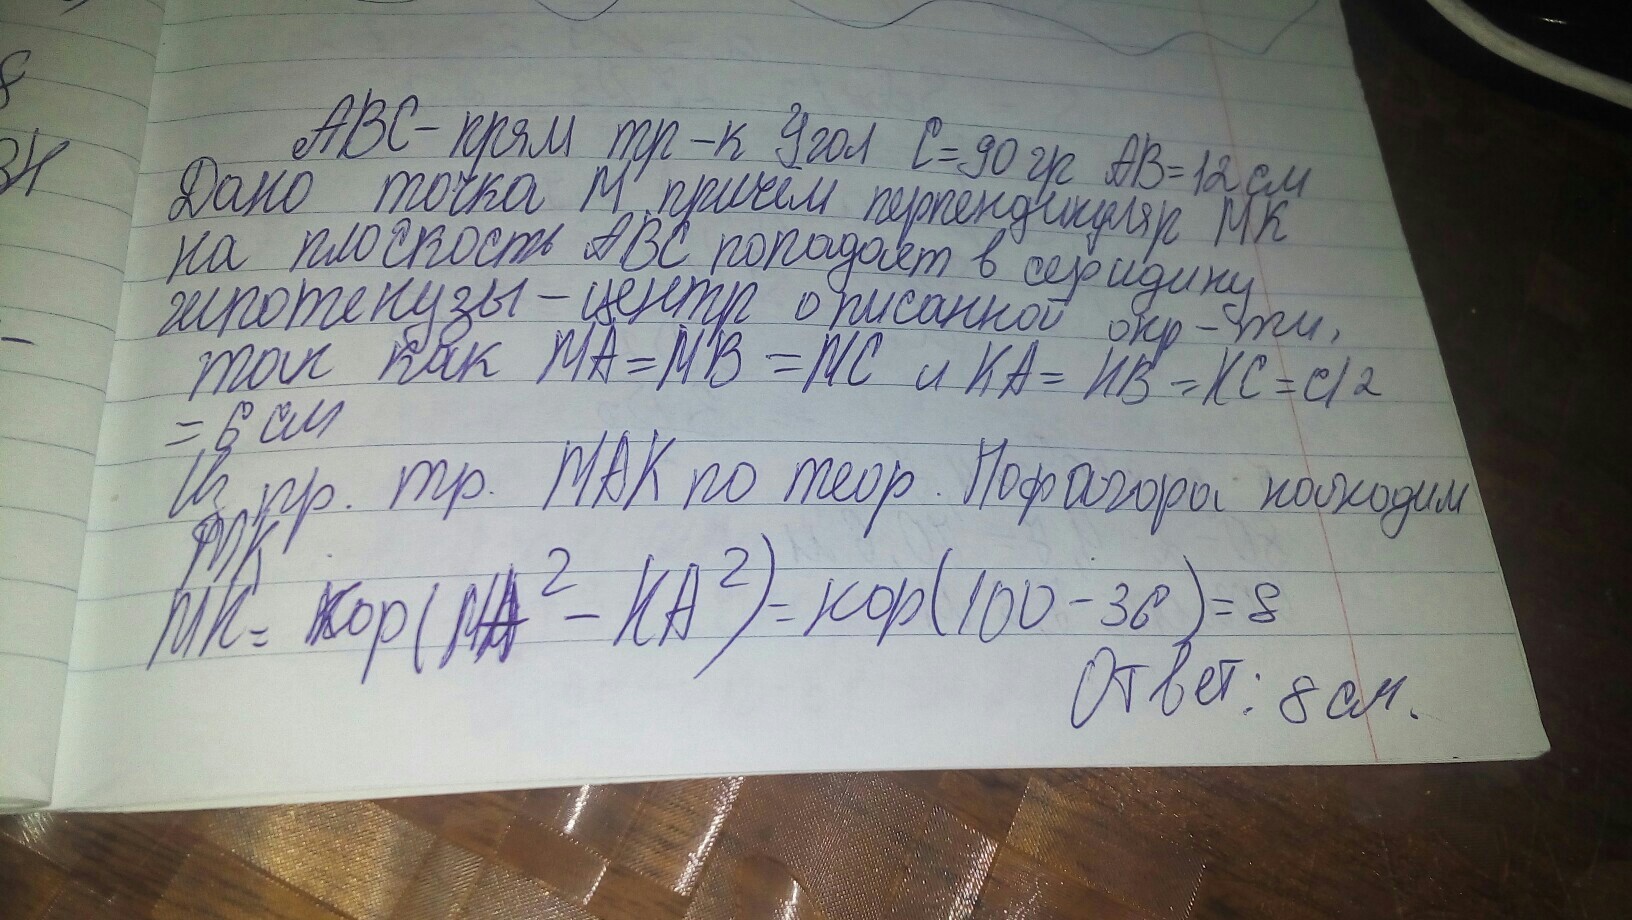 8
34
АВС - прям тр-к Угол С=90 гр АВ=12 см
Дано точка М причем перпендикуляр МК
на плоскость АВС попадает в середину
гипотенузы - центр описанной окр-ти,
так как МА=МВ=МС и КА=КВ=КС=с/2
=6 см
Из пр. тр. МАК по теор. Пифагора находим
МК
МК= кор(МА²-КА²)=кор(100-36)=8
Ответ: 8 см.